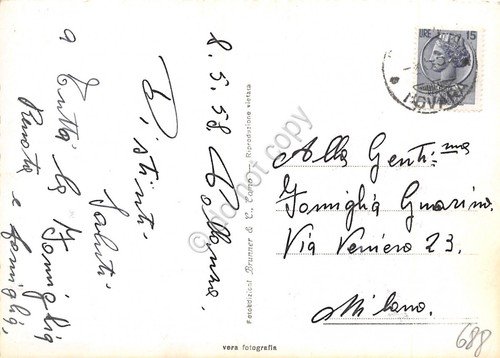 8.5.58 Pallanza.
Distinti
Saluti
a tutta la Famiglia
Renata e Famiglia
Fotoedizioni Brunner & C., Como - Riproduzione vietata
vera fotografia
LIRE 15
Alla Genti.ma
Famiglia Guarino.
Via Veniero 23.
Milano.
688